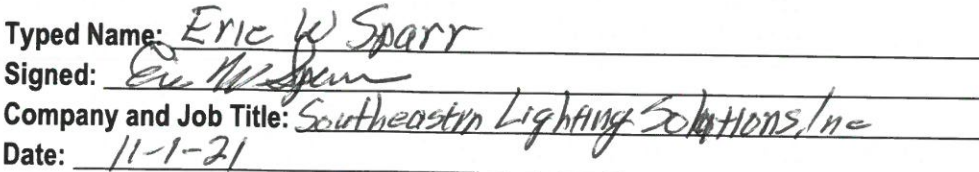 Typed Name: Eric W Sparr
Signed: Eric W Sparr
Company and Job Title: Southeastrn Lighting Solutions, Inc
Date: 11-1-21